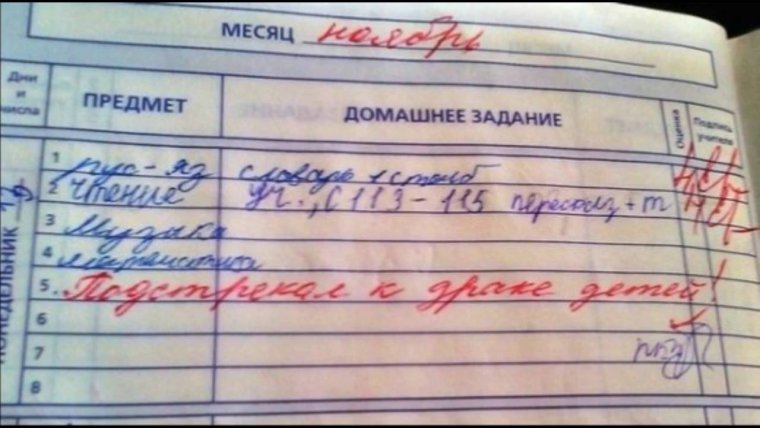 МЕСЯЦ ноябрь
Дни и числа ПРЕДМЕТ ДОМАШНЕЕ ЗАДАНИЕ Оценка Подпись учителя
ПОНЕДЕЛЬНИК
1 рус-яз словарь 1 столб
2 Чтение уч., с 113-115
3 Музыка
4 Математика
5 Подстрекал к драке детей!
6
7
8